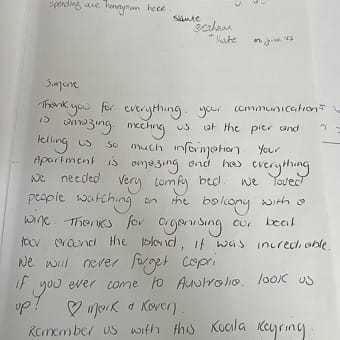 spending our honeymoon here.
+ Kate
on June 23
Simone
Thank you for everything. your communication
is amazing. meeting us at the pier and
telling us so much information. Your
Apartment is amazing and has everything
we needed very comfy bed. We loved
people watching on the balcony with a
wine. Thanks for organising our boat
tour around the Island, it was incrediable.
We will never forget Capri
if you ever come to Australia. look us
up! ♡ Mark & Karen.
Remember us with this Koala Keyring.